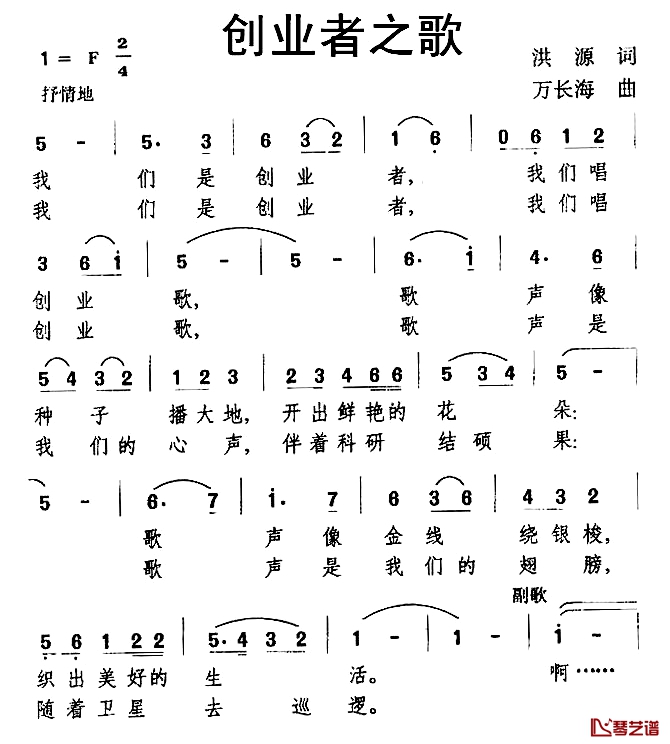 创业者之歌
1 = F 2/4
洪源 词
抒情地
万长海 曲
5 - | 5. 3 | 6 3 2 | 1 6 | 0 6 1 2 |
我 们 是 创 业 者, 我 们 唱
我 们 是 创 业 者, 我 们 唱
3 6 i | 5 - | 5 - | 6. i | 4. 6 |
创 业 歌, 歌 声 像
创 业 歌, 歌 声 是
5 4 3 2 | 1 2 3 | 2 3 4 6 6 | 5 3 4 | 5 - |
种 子 播 大 地, 开 出 鲜 艳 的 花 朵:
我 们 的 心 声, 伴 着 科 研 结 硕 果:
5 - | 6. 7 | i. 7 | 6 3 6 | 4 3 2 |
歌 声 像 金 线 绕 银 梭,
歌 声 是 我 们 的 翅 膀,
副歌
5 6 1 2 2 | 5. 4 3 2 | 1 - | 1 - | i - |
织 出 美 好 的 生 活。 啊……
随 着 卫 星 去 巡 逻。
琴艺谱